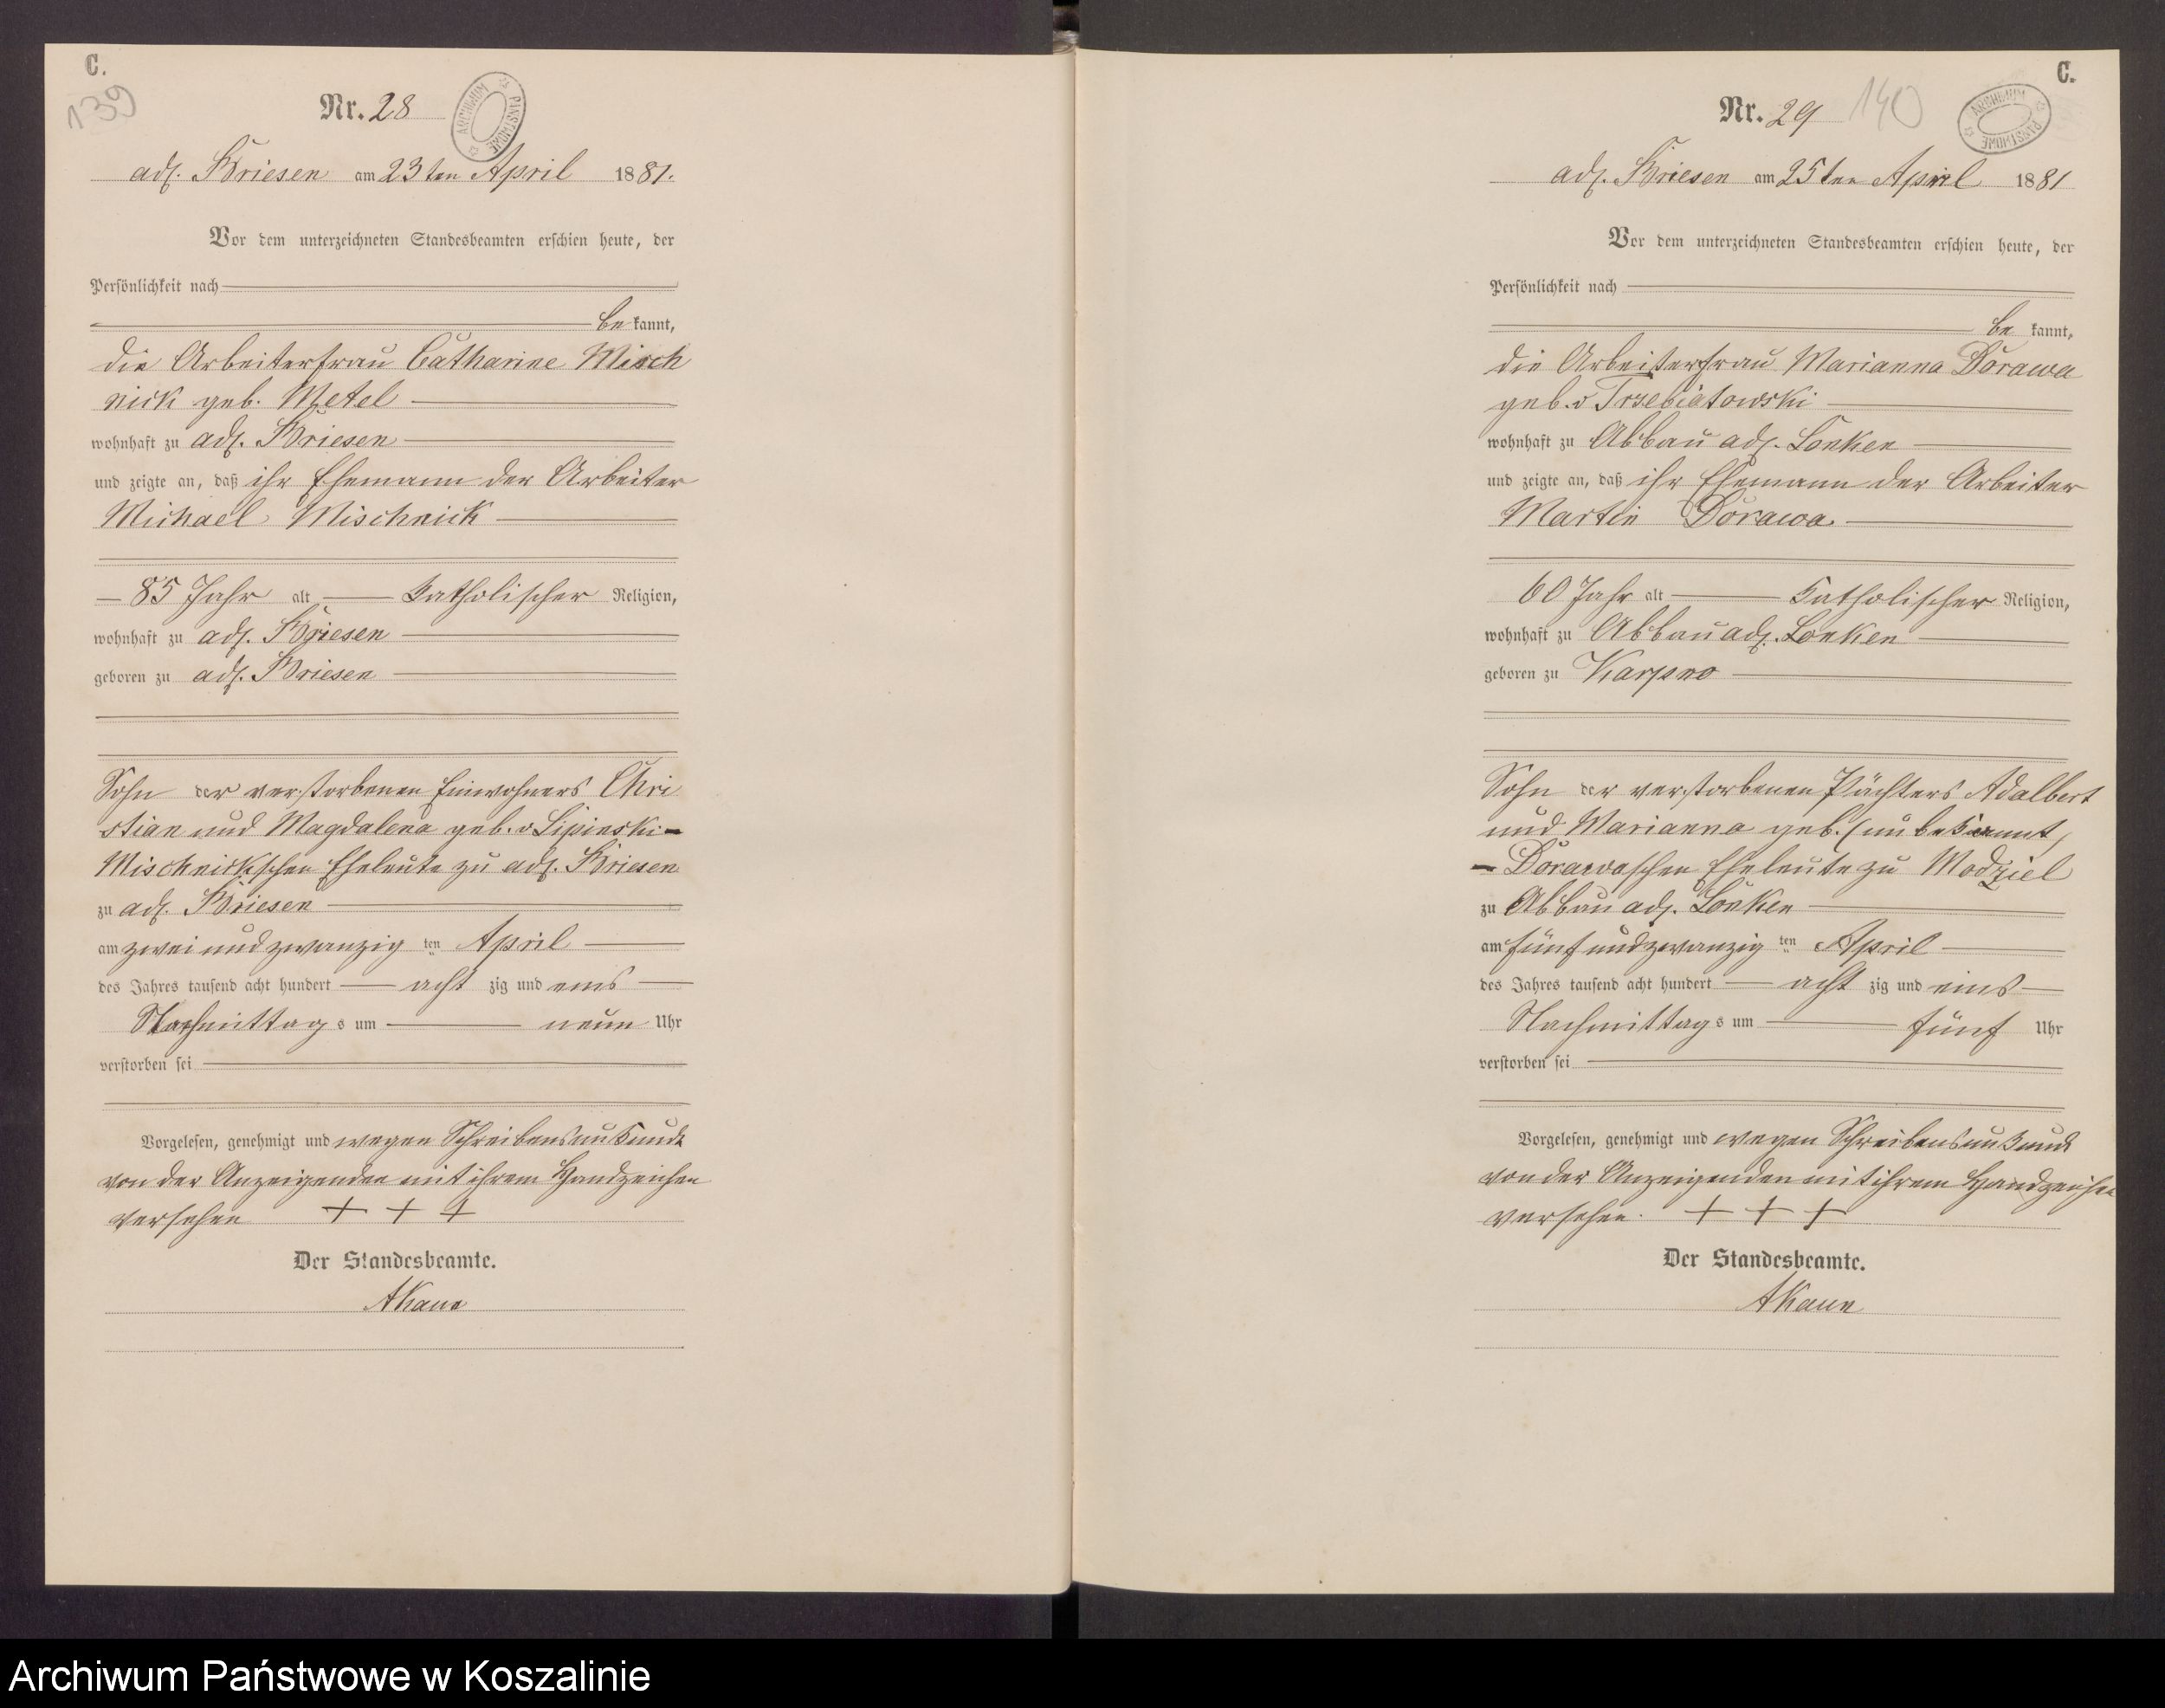 C.
139
Nr. 28
ARCHIWUM PAŃSTWOWE
adl. Briesen am 23ten April 1881.
Vor dem unterzeichneten Standesbeamten erschien heute, der
Persönlichkeit nach
be kannt,
die Arbeiterfrau Catharine Misch
nick geb. Metel
wohnhaft zu adl. Briesen
und zeigte an, daß ihr Ehemann der Arbeiter
Michael Mischnick
85 Jahr alt katholischer Religion,
wohnhaft zu adl. Briesen
geboren zu adl. Briesen
Sohn der verstorbenen Einwohners Chri
stian und Magdalena geb. v Lipinski-
Mischnickschen Eheleute zu adl. Briesen
zu adl. Briesen
am zwei und zwanzig ten April
des Jahres tausend acht hundert acht zig und eins
Nachmittag s um neun Uhr
verstorben sei
Vorgelesen, genehmigt und wegen Schreibensunkunde
von der Anzeigenden mit ihrem Handzeichen
versehen + + +
Der Standesbeamte.
C.
Nr. 29 140
ARCHIWUM PAŃSTWOWE
adl. Briesen am 25ten April 1881
Vor dem unterzeichneten Standesbeamten erschien heute, der
Persönlichkeit nach
be kannt,
die Arbeiterfrau Marianna Dorawa
geb. v Trsebiatowski
wohnhaft zu Abbau adl. Lonken
und zeigte an, daß ihr Ehemann der Arbeiter
Martin Dorawa
60 Jahr alt katholischer Religion,
wohnhaft zu Abbau adl. Lonken
geboren zu Karpno
Sohn der verstorbenen Pächters Adalbert
und Marianna geb. (unbekannt)
- Dorawaschen Eheleute zu Modziel
zu Abbau adl. Lonken
am fünf und zwanzig ten April
des Jahres tausend acht hundert acht zig und eins
Nachmittag s um fünf Uhr
verstorben sei
Vorgelesen, genehmigt und wegen Schreibensunkunde
von der Anzeigenden mit ihrem Handzeichen
versehen. + + +
Der Standesbeamte.
Archiwum Państwowe w Koszalinie